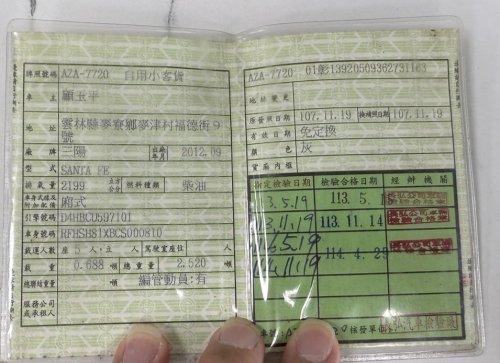 牌照號碼 AZA-7720 自用小客貨
車主 顧玉平
地址 雲林縣麥寮鄉麥津村福德街9
號
廠牌 三陽 出廠年月 2012.09
型式 SANTA FE
排氣量 2199 立方公分 燃料種類 柴油
車身式樣及附加配備 廂式
引擎號碼 D4HBCU597101
車身號碼 RFHSH81XBCS000810
載運人數 座 5 人,立 人 駕駛室座位 人
載重 0.688 噸 總重量 2.520 噸
總聯結重量 噸 編管動員:有
服務公司或承租人
AZA-7720 01彰13920509362731163
地址變更
原發照日期 107.11.19 換補照日期 107.11.19
有效日期 免定換
顏色 灰
貨廂內框
指定檢驗日期 檢驗合格日期 經辦機關
3.5.19 113.5.1
3.11.19 113.11.14
4.5.19 114.4.25
4.11.19